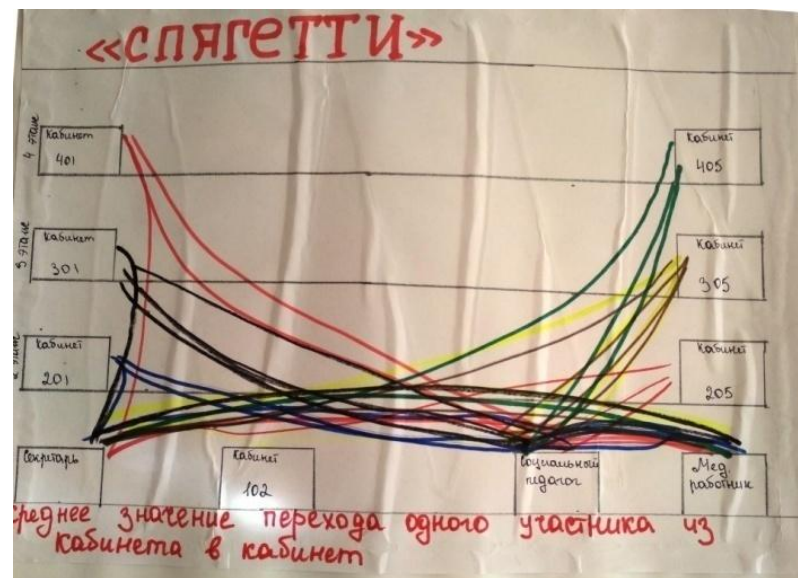 «СПЯГЕТТИ»
4 этаж
Кабинет
401
Кабинет
405
3 этаж
Кабинет
301
Кабинет
305
2 этаж
Кабинет
201
Кабинет
205
Секретарь
Кабинет
102
Социальный
педагог
Мед.
работник
среднее значение перехода одного участника из
кабинета в кабинет